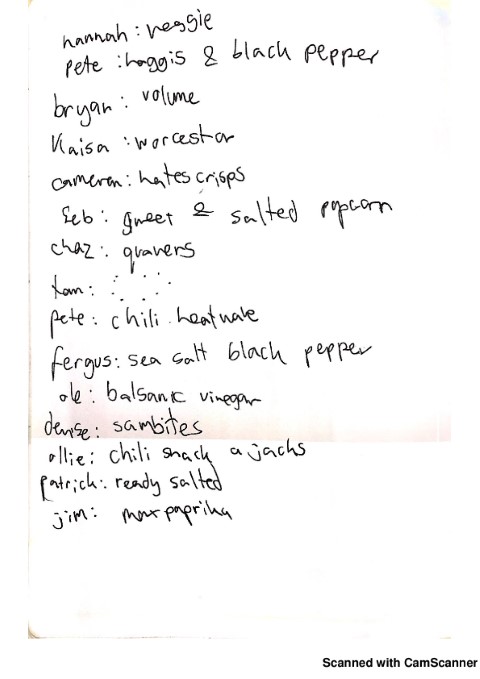 hannah : veggie
pete : haggis & black pepper
bryan : volume
Kaisa : worcestor
cameren : hates crisps
Seb : sweet & salted popcorn
chaz : quavers
tom :
pete : chili heatwave
fergus : sea salt black pepper
ole : balsamic vinegar
denise : sambites
ollie : chili snack a jacks
patrick : ready salted
jim : max paprika
Scanned with CamScanner